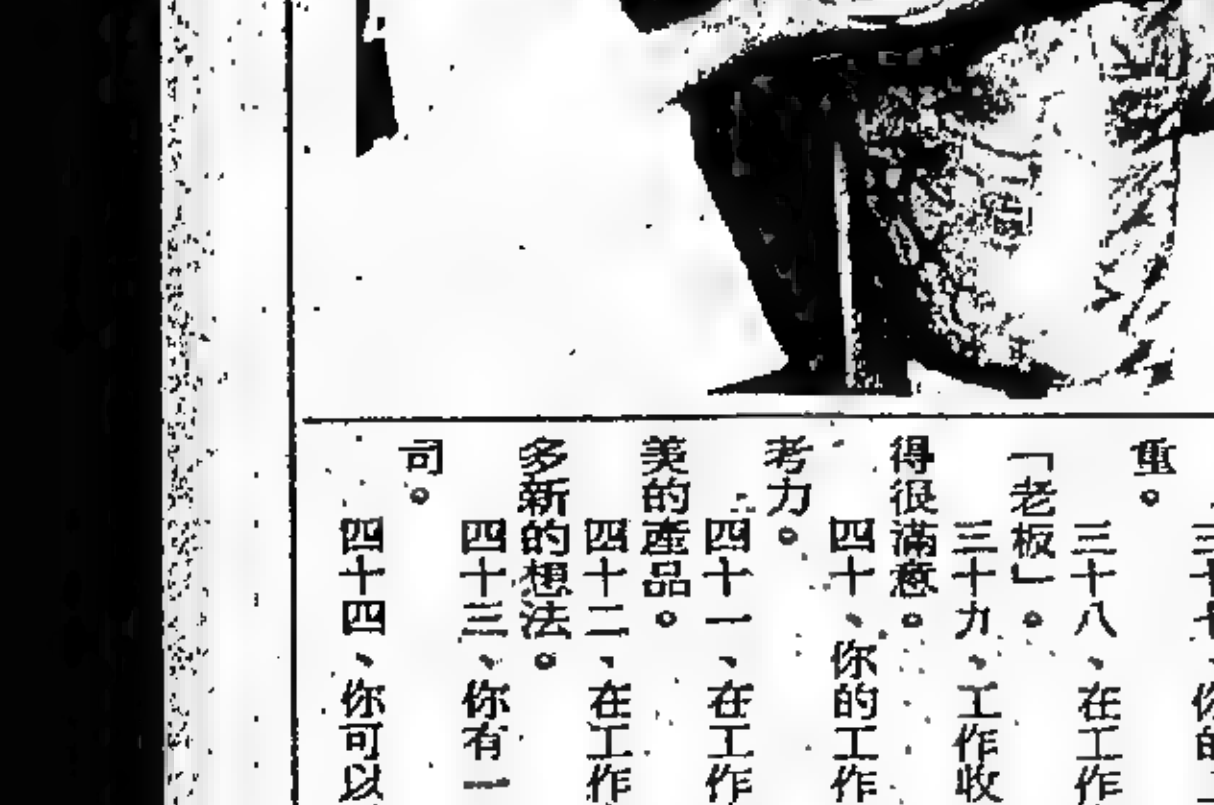 三十七、你的
重。
三十八、在工作
「老板」。
三十九、工作收
得很滿意。
四十、你的工作
考力。
四十一、在工作
美的產品。
四十二、在工作
多新的想法。
四十三、你有一
司。
四十四、你可以